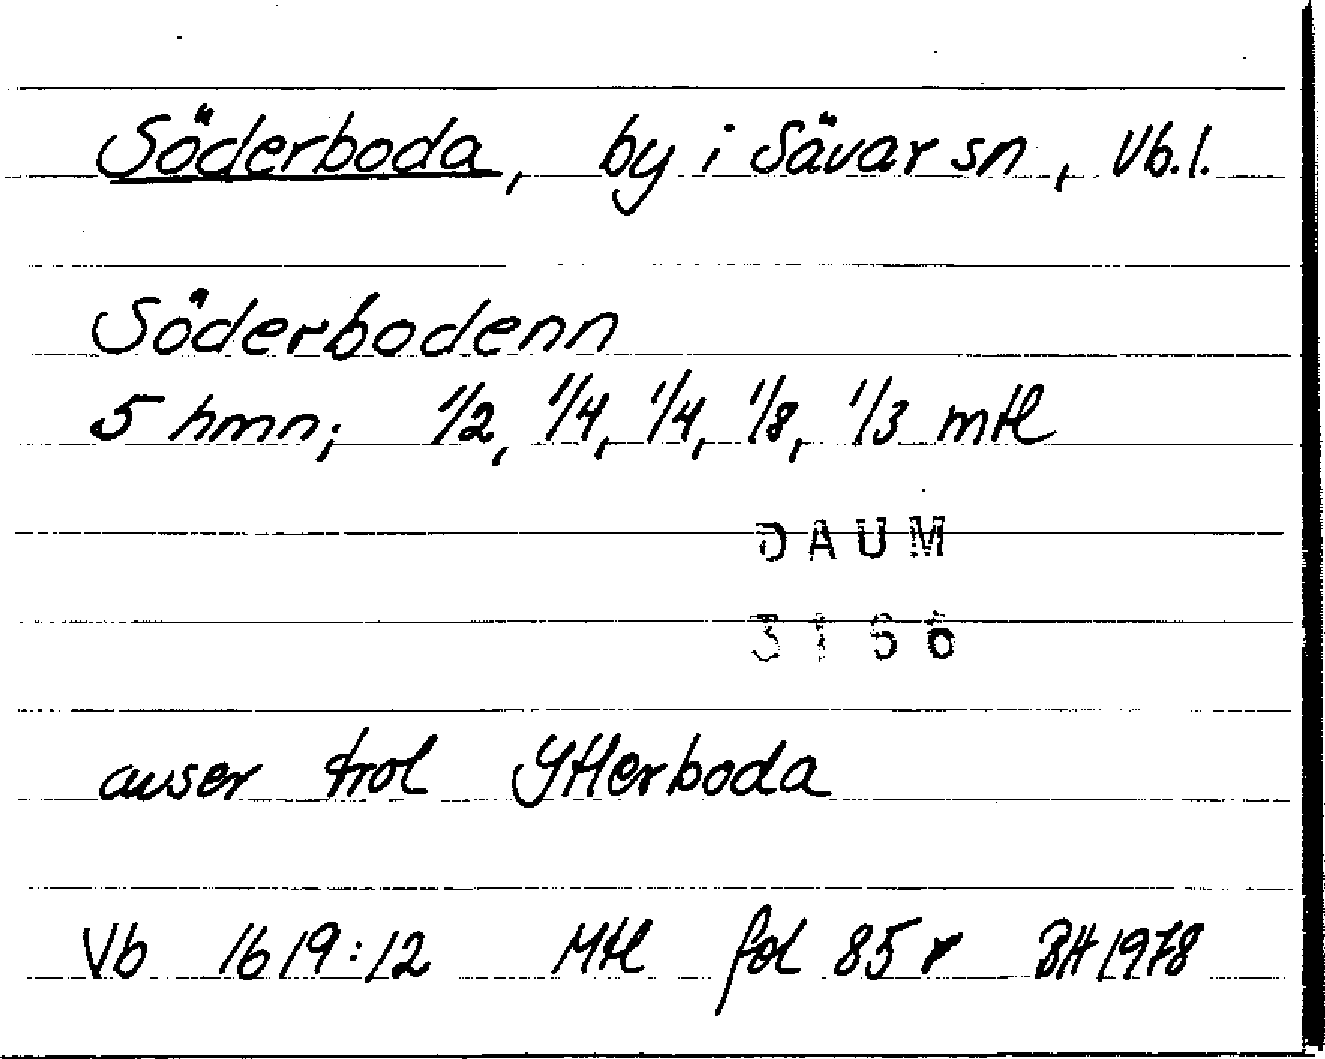 Söderboda, by i Sävar sn, Vb.l.
Söderbodenn
5 hmn; 1/2, 1/4, 1/4, 1/8, 1/3 mtl
DAUM
3166
avser trol Ytterboda
Vb 1619:12 Mtl fol 85 r BH 1978